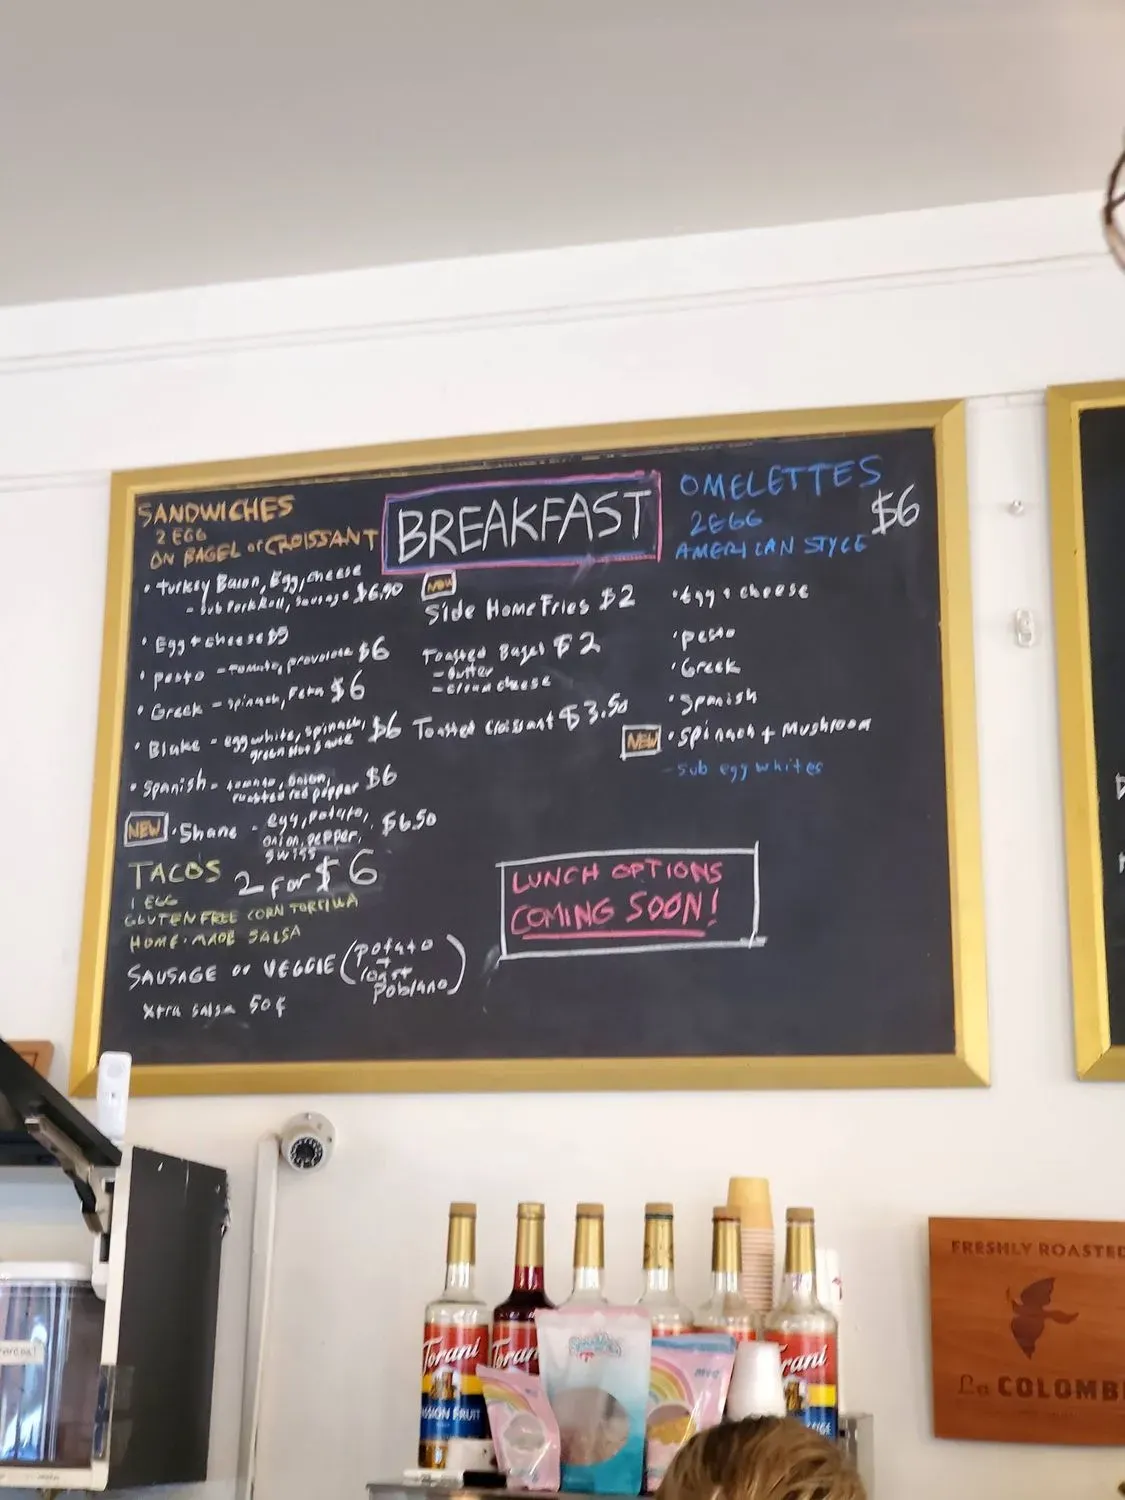 SANDWICHES
2 EGG
ON BAGEL or CROISSANT
• Turkey Bacon, Egg, cheese
- sub Pork Roll, Sausage $6.90
• Egg + cheese $5
• Pesto - tomato, provolone $6
• Greek - spinach, Feta $6
• Blake - egg white, spinach, $6
green hot sauce
• Spanish - tomato, onion, $6
roasted red pepper
NEW • Shane - egg, potato, $6.50
onion, pepper,
swiss
TACOS 2 for $6
1 EGG
GLUTEN FREE CORN TORTILLA
HOME-MADE SALSA
SAUSAGE or VEGGIE (potato
+
roast
poblano)
Xtra salsa 50¢
BREAKFAST
NEW
Side Home Fries $2
Toasted Bagel $2
- Butter
- cream cheese
Toasted Croissant $3.50
OMELETTES
2 EGG $6
AMERICAN STYLE
• Egg + cheese
• pesto
• Greek
• Spanish
NEW • Spinach + Mushroom
- sub egg whites
LUNCH OPTIONS
COMING SOON!
Torani
Torani
Torani
FRESHLY ROASTED
La COLOMB